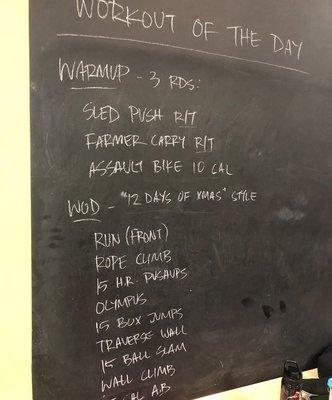 WORKOUT OF THE DAY
WARMUP - 3 RDS:
SLED PUSH R/T
FARMER CARRY R/T
ASSAULT BIKE 10 CAL
WOD - "12 DAYS OF XMAS" STYLE
RUN (FRONT)
ROPE CLIMB
15 H.R. PUSHUPS
OLYMPUS
15 BOX JUMPS
TRAVERSE WALL
15 BALL SLAM
WALL CLIMB
CAL A.B